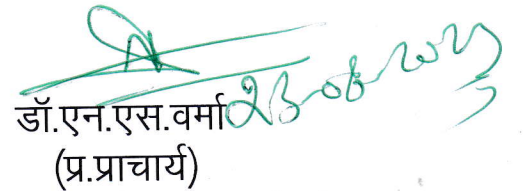 डॉ.एन.एस.वर्मा
(प्र.प्राचार्य)